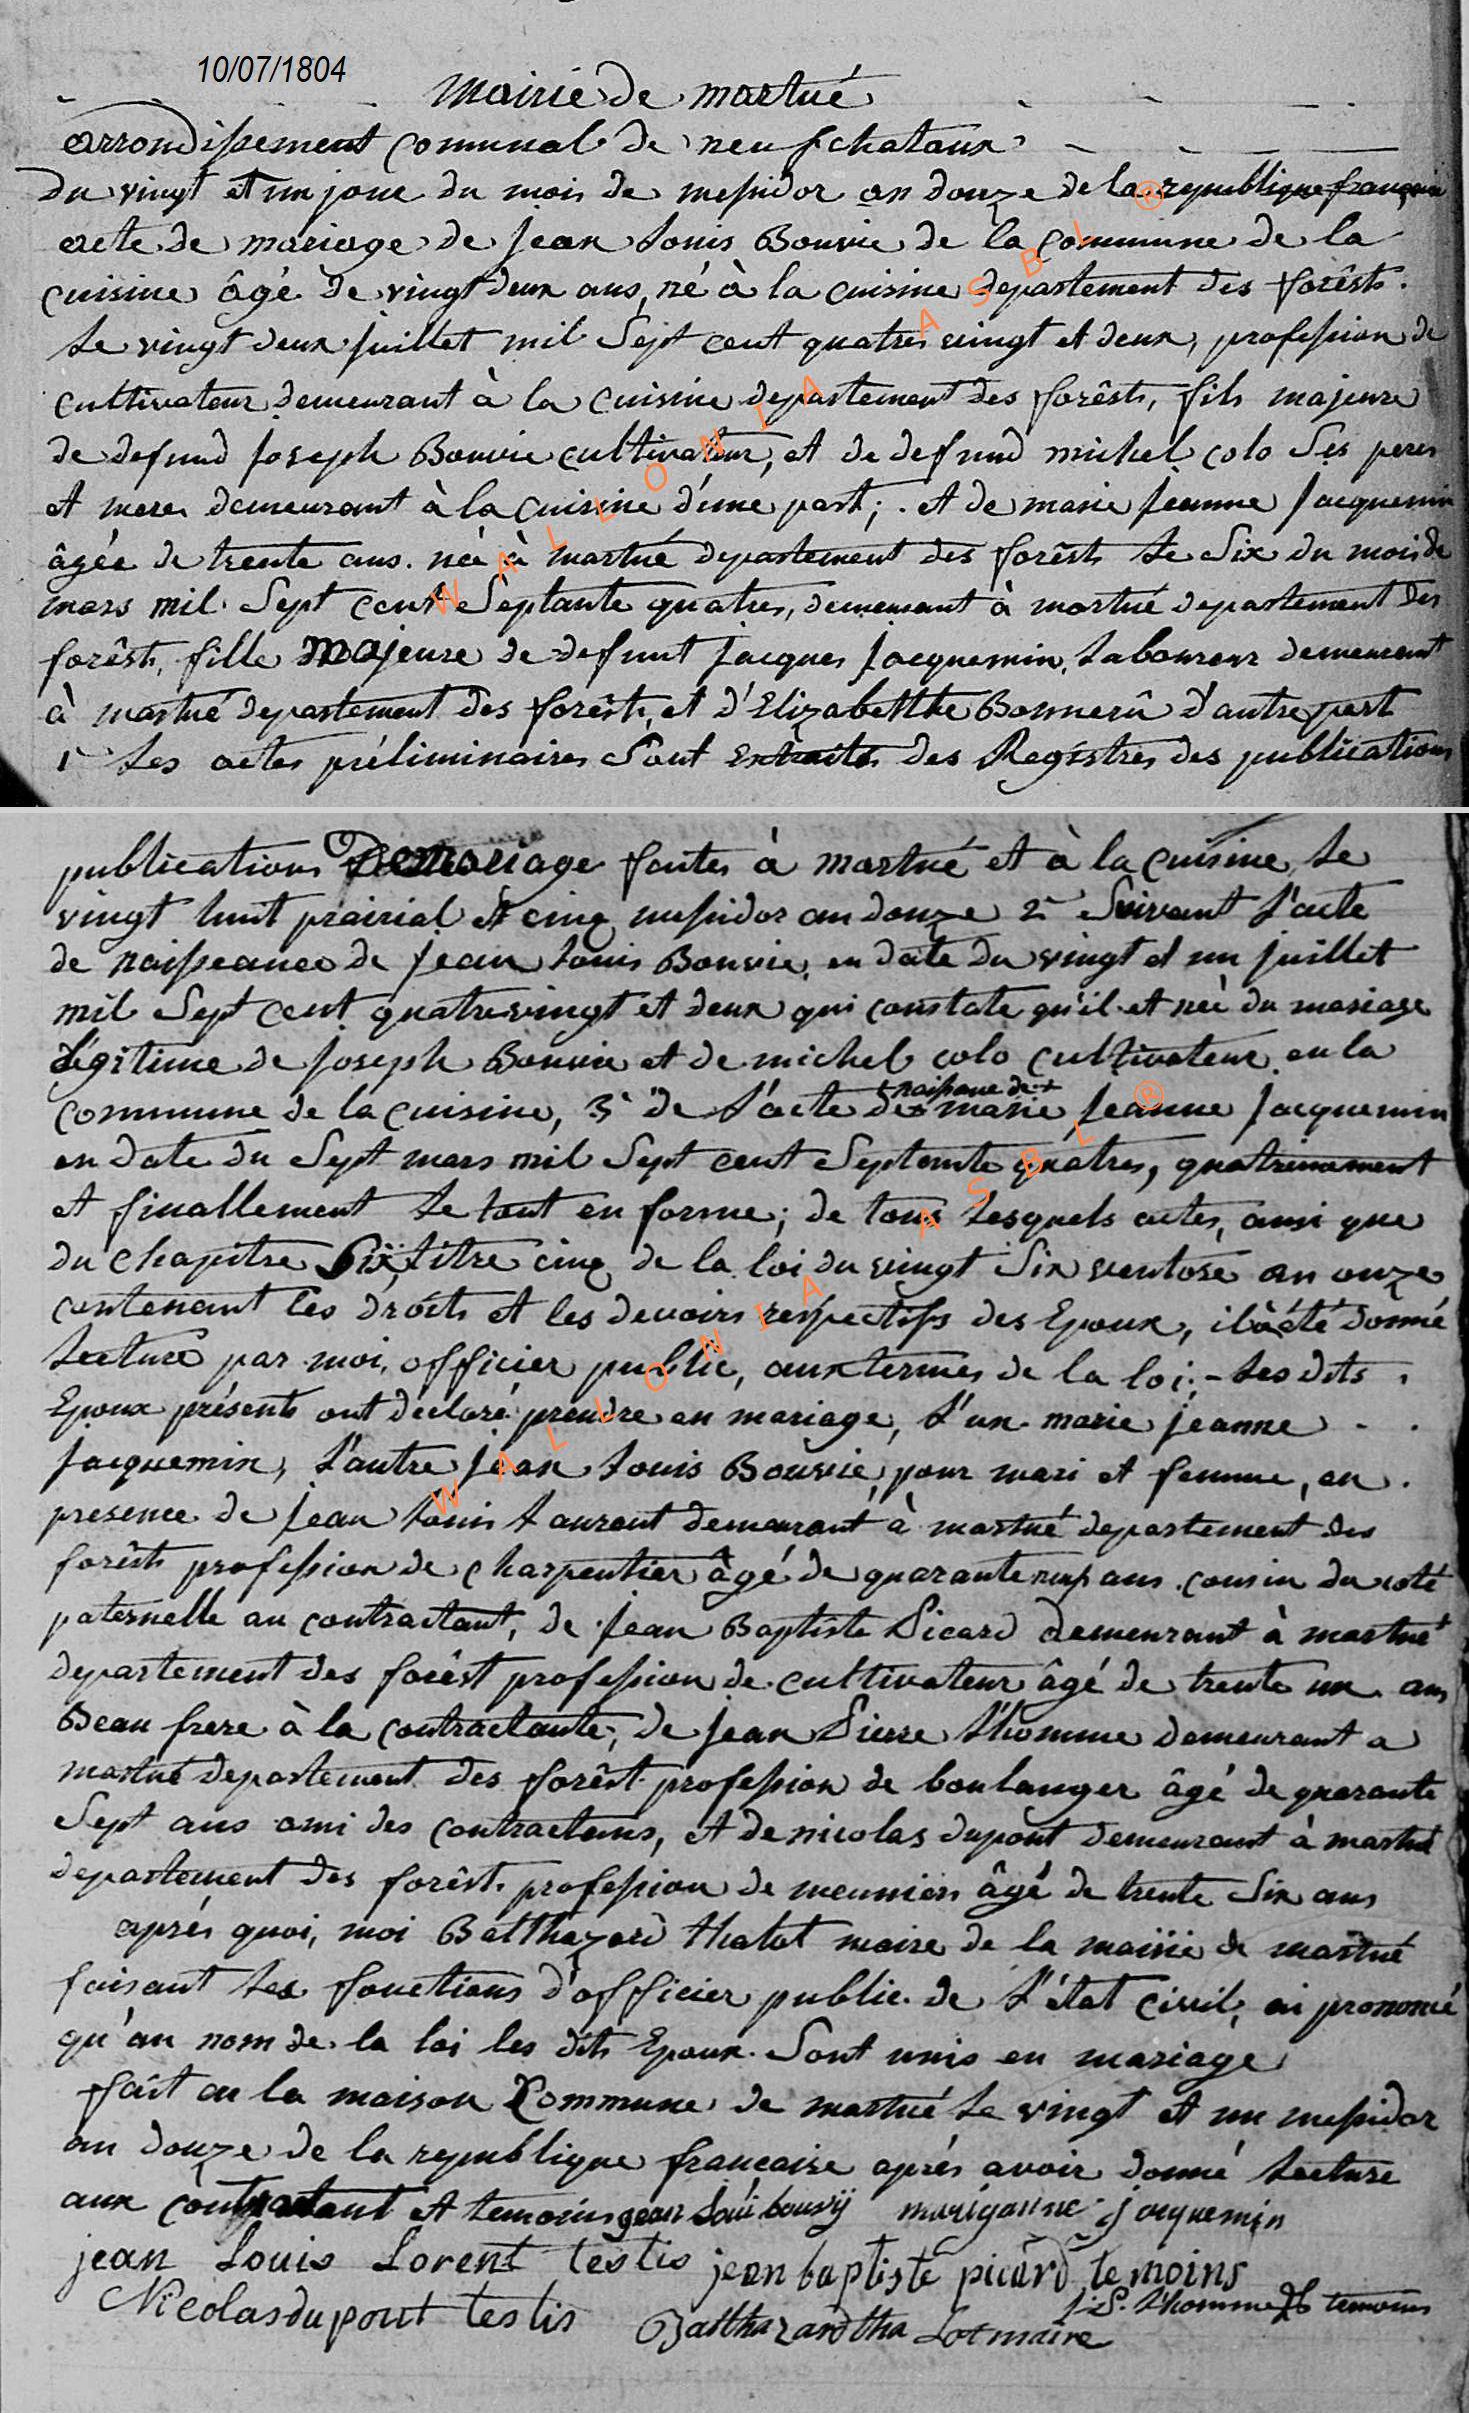 10/07/1804
Mairie de martué
arrondissement communal de neufchataux
Du vingt et un jour du mois de messidor an douze de la republique française
acte de mariage de jean Louis Bouvie de la commune de la
cuisine âgé de vingt deux ans, né à la cuisine departement des forêsts.
Le vingt deux juillet mil Sept cent quatres vingt et deux, profession de
cultivateur demeurant à la cuisine departement des forêsts, fils majeure
de defund joseph Bouvie cultivateur, et de defund michel colo Ses peres
et meres demeurant à la cuisine d'une part; et de marie jeanne jacquemin
âgée de trente ans. née à martué departement des forêsts Le Six du mois de
mars mil Sept cent Septante quatres, demeurant à martué departement des
forêsts, fille majeure de defunt jacques jacquemin, Laboureur demeurant
à martué departement des forêsts, et d'Elizabethte Bonnerû d'autre part
1° Les actes préliminaires Sont Extraits des Registres des publications
publications De mariage faites à martué et à la cuisine, Le
vingt huit prairial et cinq messidor an douze 2° Suivant L'acte
de naisseance de jean Louis Bouvie, en date du vingt et un juillet
mil Sept cent quatrevingt et deux qui constate qu'il et née du mariage
légitime de joseph Bouvie et de michel colo cultivateur en la
commune de la cuisine, 3° de L'acte de + naissance de + marie jeanne jacquemin
en date du Sept mars mil Sept cent Septante quatres, quatriemement
et finallement Le tout en forme; de tous Lesquels actes, ainsi que
du chapitre Six, titre cinq de la loi du vingt Six ventose an onze
contenant les droits et les devoirs respectifs des Epoux, il à été donné
Lecture par moi, officier public, aux termes de la loi; - Les dits
Epoux présents ont déclaré prendre en mariage, L'un marie jeanne
jacquemin, L'autre jean Louis Bouvie, pour mari et femme, en
presence de jean Louis Laurant demeurant à martué departement des
forêsts profession de charpentier âgé de quarante neuf ans cousin du coté
paternelle au contractant, de jean Baptiste Picard demeurant à martué
departement des forêst profession de cultivateur âgé de trente un ans
Beau frere à la contractante, de jean Pierre L'homme demeurant a
martué departement des forêst profession de boulanger âgé de quarante
Sept ans ami des contractans, et de nicolas dupont demeurant à martué
departement des forêsts profession de meuniers âgé de trente Six ans
aprés quoi, moi Balthazard thatot maire de la mairie de martué
faisant Les fonctions d'officier public de L'état civil, ai prononcé
qu'au nom de la loi les dits Epoux Sont unis en mariage
fait en la maison Commune de martué Le vingt et un messidor
an douze de la republique francaise aprés avoir donné Lecture
aux contractant et temoins jean Loui bouvÿ mariganne jacquemin
jean Louis Lorent testis jean baptiste picard temoins
Nicolas dupont testis J: P. L'homme temoins
Balthazard tha Lot maire
WALLONIA ASBL ®
WALLONIA ASBL ®